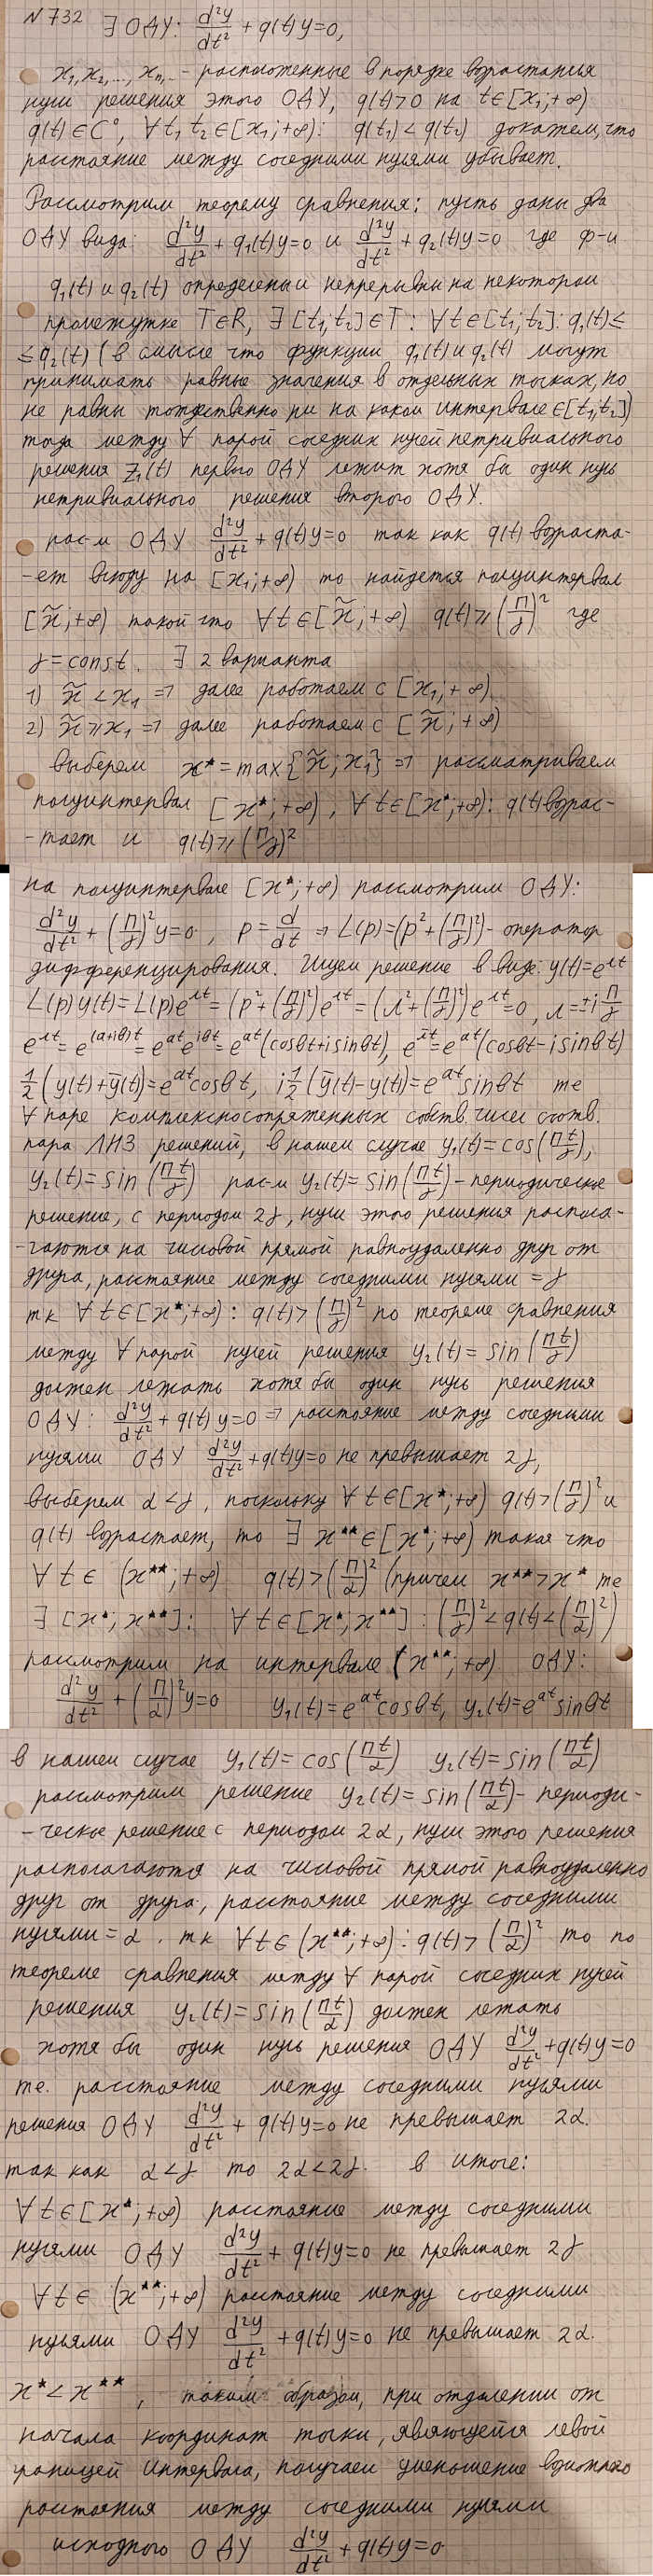 N732 ∃ ОДУ: d²y/dt² + q(t)y=0,
x₁, x₂, ..., xₙ, .. - расположенные в порядке возрастания
нули решения этого ОДУ, q(t)>0 на t∈[x₁;+∞)
q(t)∈C⁰, ∀t₁ t₂∈[x₁;+∞): q(t₁)<q(t₂) докажем, что
расстояние между соседними нулями убывает.
Рассмотрим теорему сравнения: пусть даны два
ОДУ вида: d²y/dt² + q₁(t)y=0 и d²y/dt² + q₂(t)y=0 где ф-и
q₁(t) и q₂(t) определены и непрерывны на некотором
промежутке T∈R, ∃[t₁;t₂]∈T: ∀t∈[t₁;t₂]: q₁(t)≤
≤q₂(t) (в смысле что функции q₁(t) и q₂(t) могут
принимать равные значения в отдельных точках, но
не равны тождественно ни на каком интервале ∈[t₁,t₂])
тогда между ∀ парой соседних нулей нетривиального
решения z₁(t) первого ОДУ лежит хотя бы один нуль
нетривиального решения второго ОДУ.
рас-м ОДУ d²y/dt² + q(t)y=0 так как q(t) возраста-
-ет всюду на [x₁;+∞) то найдется полуинтервал
[x̃;+∞) такой что ∀t∈[x̃;+∞) q(t)⩾(π/γ)² где
γ=const. ∃ 2 варианта
1) x̃<x₁ ⇒ далее работаем с [x₁;+∞)
2) x̃⩾x₁ ⇒ далее работаем с [x̃;+∞)
выберем x*=max{x̃;x₁} ⇒ рассматриваем
полуинтервал [x*;+∞), ∀t∈[x*;+∞): q(t) возрас-
-тает и q(t)⩾(π/γ)²
на полуинтервале [x*;+∞) рассмотрим ОДУ:
d²y/dt² + (π/γ)²y=0, p=d/dt ⇒ L(p)=(p²+(π/γ)²)- оператор
дифференцирования. Ищем решение в виде: y(t)=e^λt
L(p)y(t)=L(p)e^λt=(p²+(π/γ)²)e^λt=(λ²+(π/γ)²)e^λt=0, λ=±iπ/γ
e^λt=e^(a+iθ)t=e^at e^iθt=e^at(cosθt+isinθt), e^λ̄t=e^at(cosθt-isinθt)
1/2(y(t)+ȳ(t))=e^at cosθt, i1/2(ȳ(t)-y(t))=e^at sinθt те
∀ паре комплексносопряженных собств. чисел соотв.
пара ЛНЗ решений, в нашем случае y₁(t)=cos(πt/γ),
y₂(t)=sin(πt/γ) рас-м y₂(t)=sin(πt/γ)-периодическое
решение, с периодом 2γ, нули этого решения распола-
-гаются на числовой прямой равноудаленно друг от
друга, расстояние между соседними нулями =γ
тк ∀t∈[x*;+∞): q(t)>(π/γ)² по теореме сравнения
между ∀ парой нулей решения y₂(t)=sin(πt/γ)
должен лежать хотя бы один нуль решения
ОДУ: d²y/dt² + q(t)y=0 ⇒ расстояние между соседними
нулями ОДУ d²y/dt² + q(t)y=0 не превышает 2γ,
выберем α<γ, поскольку ∀t∈[x*;+∞) q(t)>(π/γ)² и
q(t) возрастает, то ∃ x**∈[x*;+∞) такая что
∀t∈(x**;+∞) q(t)>(π/α)² (причем x**>x* те
∃[x*;x**]: ∀t∈[x*;x**]: (π/γ)²<q(t)<(π/α)²)
рассмотрим на интервале (x**;+∞) ОДУ:
d²y/dt² + (π/α)²y=0 y₁(t)=e^at cosθt, y₂(t)=e^at sinθt
в нашем случае y₁(t)=cos(πt/α) y₂(t)=sin(πt/α)
рассмотрим решение y₂(t)=sin(πt/α)- периоди-
-ческое решение с периодом 2α, нули этого решения
располагаются на числовой прямой равноудаленно
друг от друга, расстояние между соседними
нулями=α. тк ∀t∈(x**;+∞): q(t)>(π/α)² то по
теореме сравнения между ∀ парой соседних нулей
решения y₂(t)=sin(πt/α) должен лежать
хотя бы один нуль решения ОДУ d²y/dt²+q(t)y=0
те. расстояние между соседними нулями
решения ОДУ d²y/dt² + q(t)y=0 не превышает 2α.
так как α<γ то 2α<2γ. в итоге:
∀t∈[x*;+∞) расстояние между соседними
нулями ОДУ d²y/dt² + q(t)y=0 не превышает 2γ
∀t∈(x**;+∞) расстояние между соседними
нулями ОДУ d²y/dt² + q(t)y=0 не превышает 2α.
x*<x**, таким образом, при отдалении от
начала координат точки, являющейся левой
границей интервала, получаем уменьшение
расстояния между соседними нулями
исходного ОДУ d²y/dt² + q(t)y=0